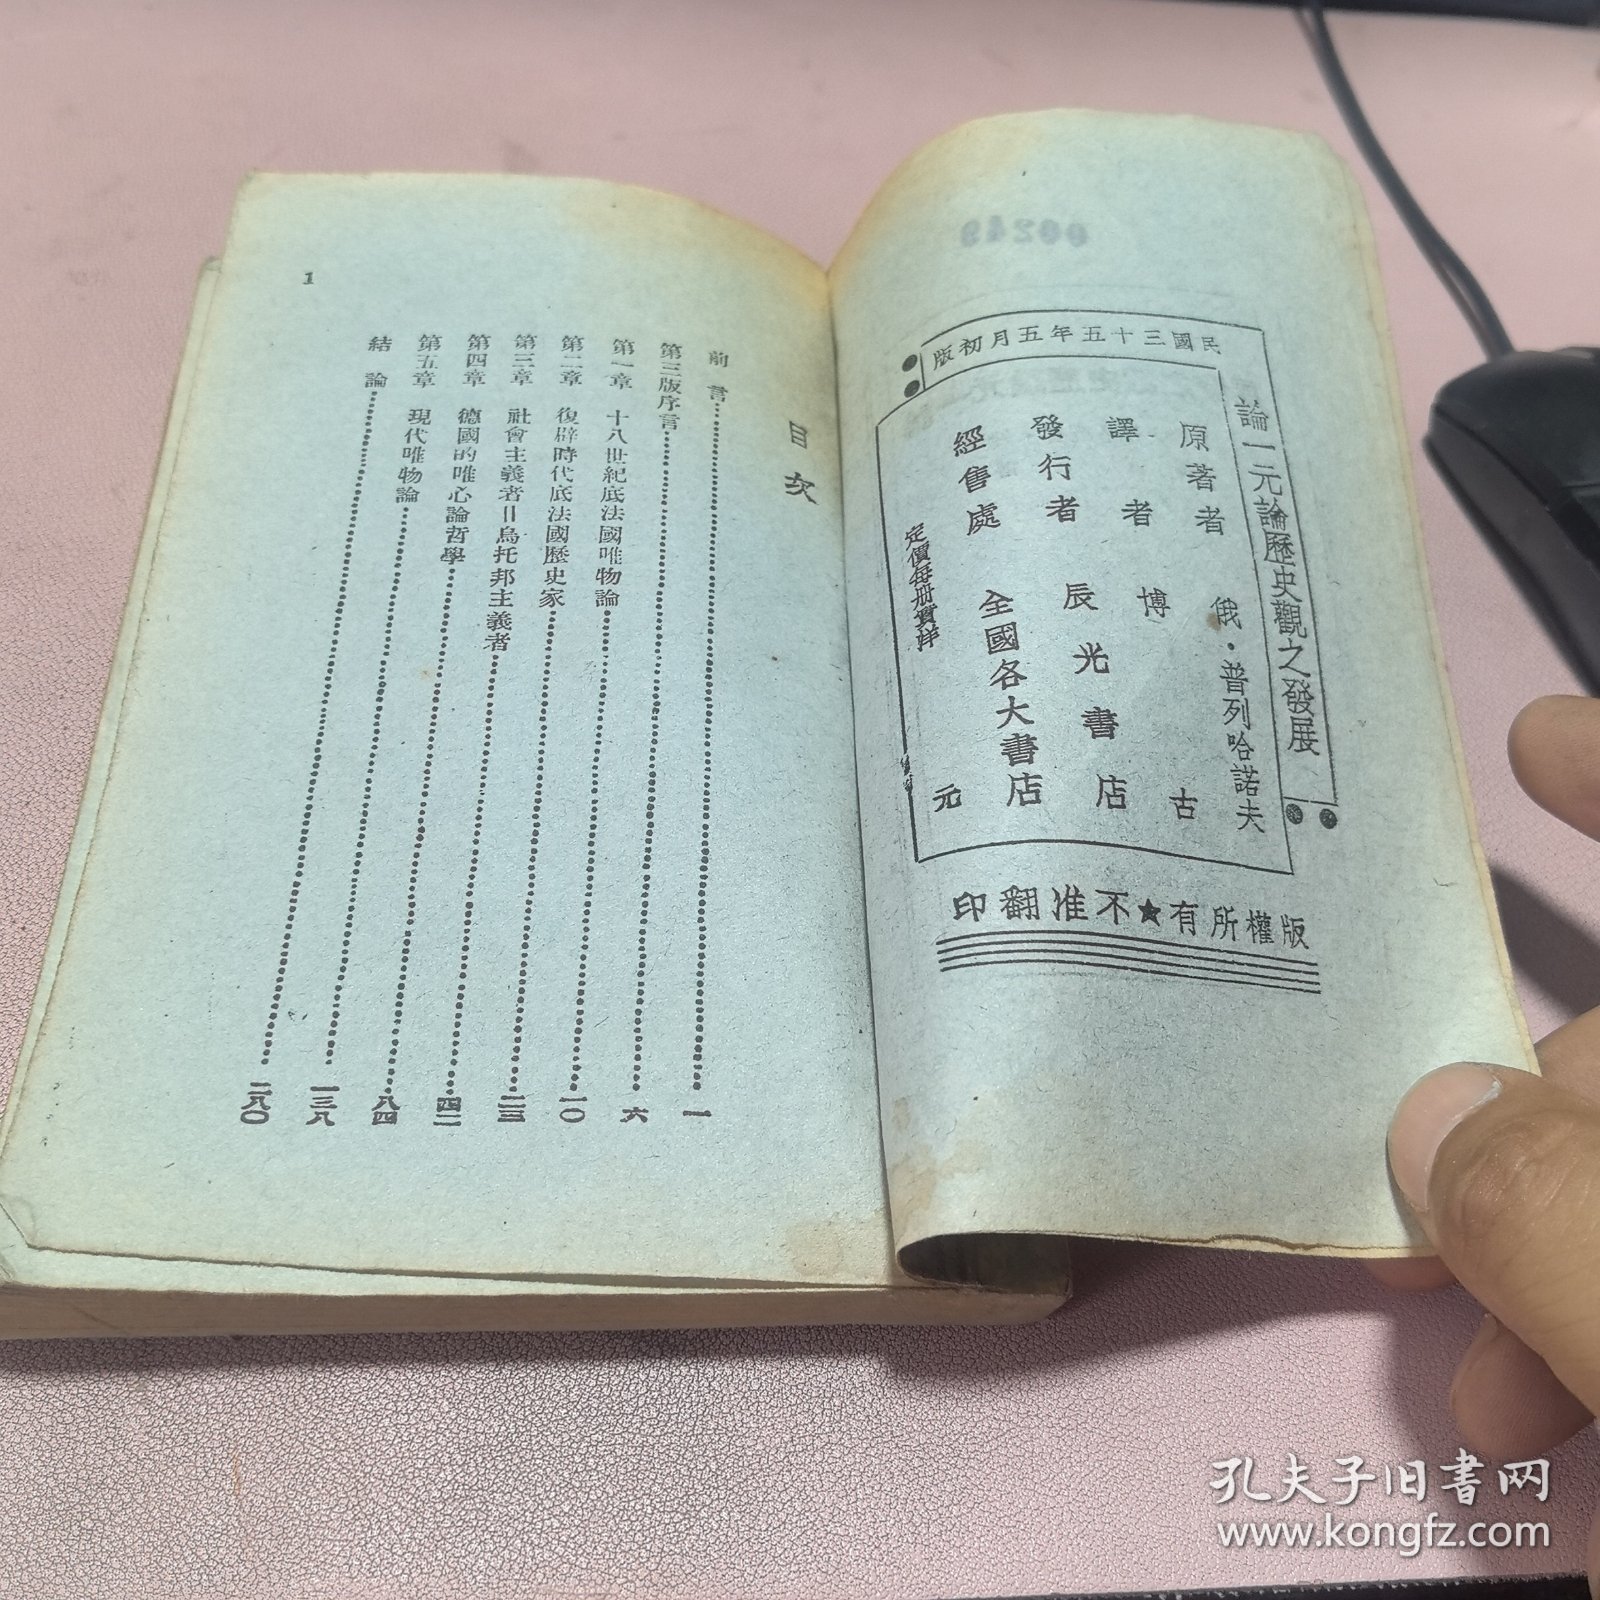 00249
民國三十五年五月初版
論一元論歷史觀之發展
原著者 俄·普列哈諾夫
譯者 博古
發行者 辰光書店
經售處 全國各大書店
定價每册實洋 元
版權所有★不准翻印
目次
前書 一
第三版序言 六
第一章 十八世紀底法國唯物論 一〇
第二章 復辟時代底法國歷史家 二三
第三章 社會主義者=烏托邦主義者 四二
第四章 德國的唯心論哲學 八四
第五章 現代唯物論 一三八
結論 二八〇
1
孔夫子旧书网
www.kongfz.com